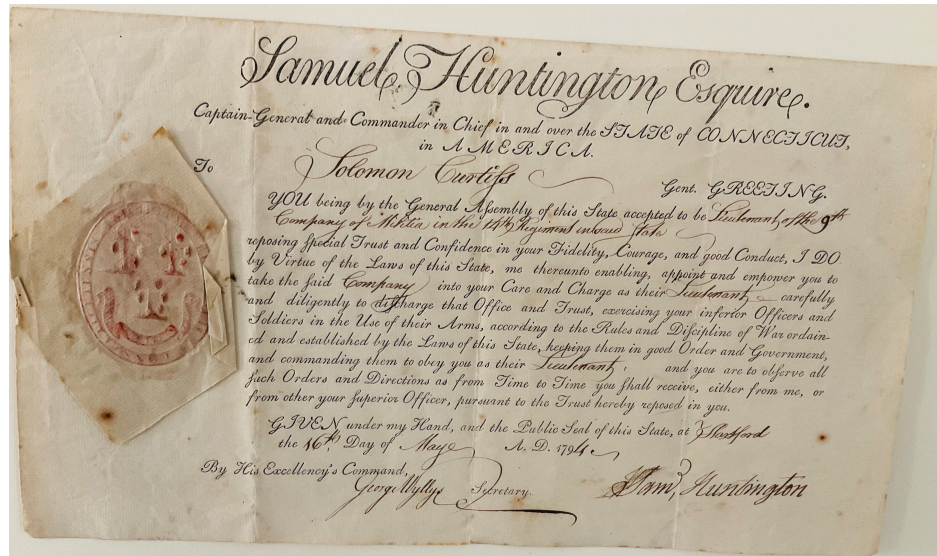 Samuel Huntington Esquire.
Captain-General and Commander in Chief in and over the STATE of CONNECTICUT,
in AMERICA.
To Solomon Curtiss Gent. GREETING.
YOU being by the General Aſsembly of this State accepted to be Lieutenant of the 9th
Company of Militia in the 14th Regiment in said State
repoſing ſpecial Truſt and Confidence in your Fidelity, Courage, and good Conduct, I DO
by Virtue of the Laws of this State, me thereunto enabling, appoint and empower you to
take the ſaid Company into your Care and Charge as their Lieutenant carefully
and diligently to diſcharge that Office and Truſt, exerciſing your inferior Officers and
Soldiers in the Uſe of their Arms, according to the Rules and Diſcipline of War ordain-
ed and eſtabliſhed by the Laws of this State, keeping them in good Order and Government,
and commanding them to obey you as their Lieutenant, and you are to obſerve all
ſuch Orders and Directions as from Time to Time you ſhall receive, either from me, or
from other your ſuperior Officer, purſuant to the Truſt hereby repoſed in you.
GIVEN under my Hand, and the Public Seal of this State, at Hartford
the 16th Day of May A. D. 1794
By His Excellency's Command,
George Wyllys Secretary.
Sam,, Huntington